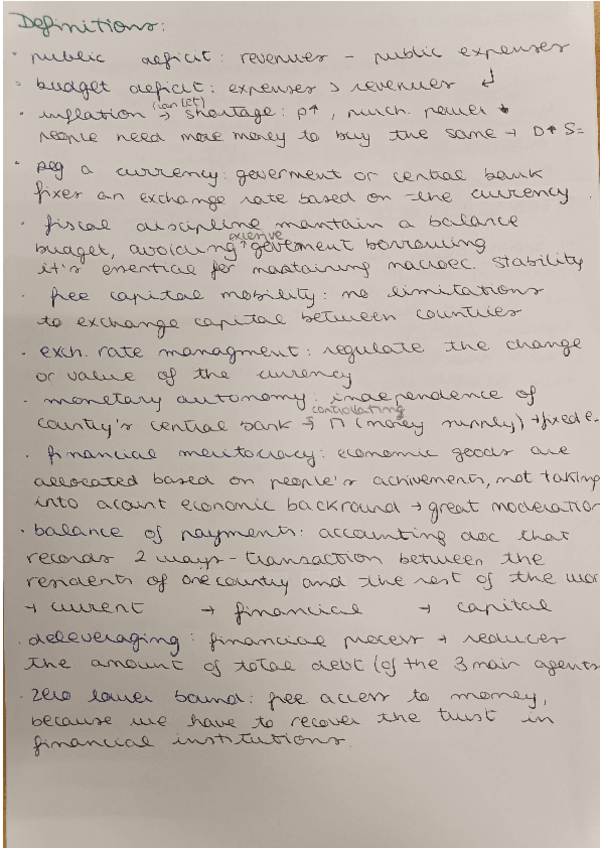 Definitions:
· public deficit: revenues - public expenses
· budget deficit: expenses > revenues ↲
· inflation → shortage: p↑, purch. power ↓
people need more money to buy the same → D↑ S=
· peg a currency: goverment or central bank
fixes an exchange rate based on the currency.
· fiscal discipline mantain a balance
budget, avoiding excesive goverment borrowing
it's essential for maintaining macroec. stability
· free capital mobility: no limitations
to exchange capital between countries
· exch. rate managment: regulate the change
or value of the currency
· monetary autonomy: independence of
country's central bank → controlating M (money supply) → fixed e.
· financial meritocracy: economic goods are
allocated based on people's achivements, not taking
into acount economic backround → great moderation
· balance of payments: accounting doc that
records 2 ways - transaction between the
residents of one country and the rest of the wor
→ current → financial → capital
· deleveraging: financial process → reduces
the amount of total debt (of the 3 main agents
· zero lower bound: free access to money,
because we have to recover the trust in
financial institutions.